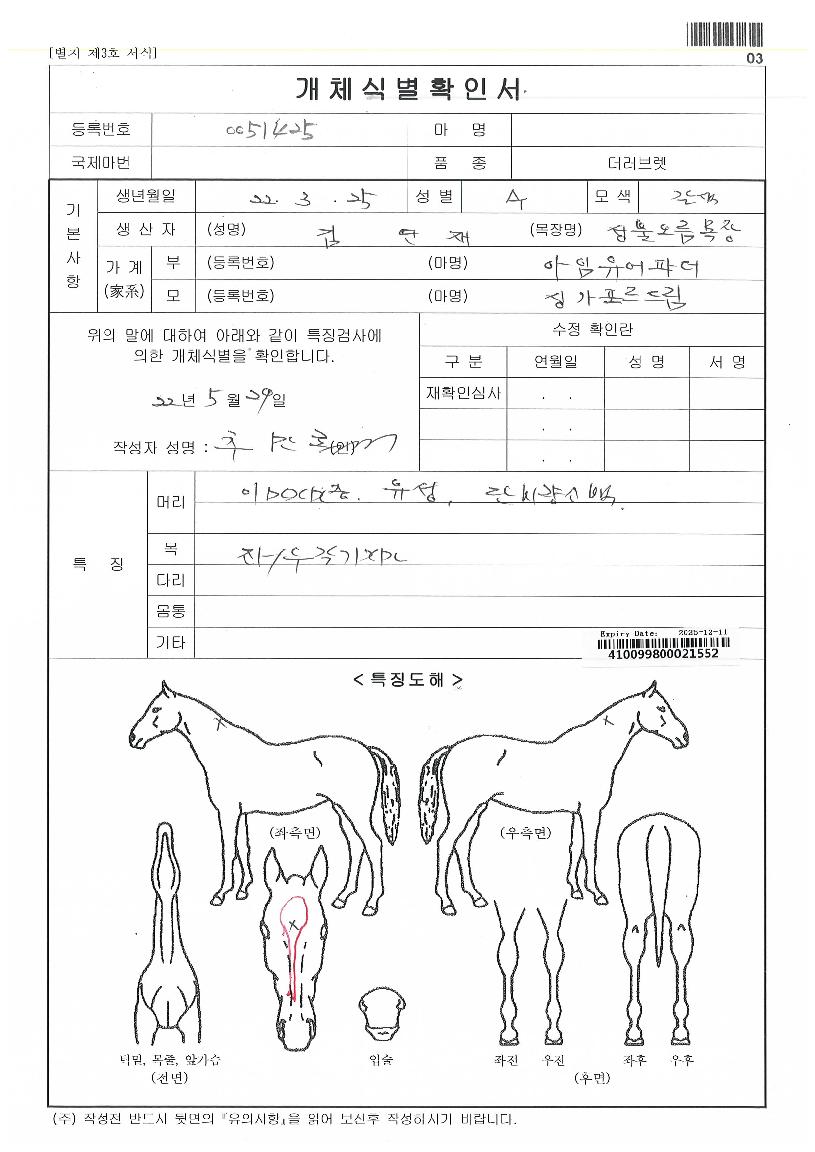 [별지 제3호 서식]
03
개체식별확인서
등록번호 0051425 마 명
국제마번 품 종 더러브렛
기본사항
생년월일 22. 3. 25 성 별 모 색
생 산 자 (성명) (목장명) 정물오름목장
가 계 (家系) 부 (등록번호) (마명) 아임유어파더
모 (등록번호) (마명) 싱가포르드림
위의 말에 대하여 아래와 같이 특징검사에
의한 개체식별을 확인합니다.
22년 5월 29일
작성자 성명 : (인)
수정 확인란
구 분 연월일 성 명 서 명
재확인심사 . .
. .
. .
특 징
머리 유성,
목
다리
몸통
기타
Expiry Date: 2025-12-11
410099800021552
< 특징도해 >
(좌측면) (우측면)
턱밑, 목줄, 앞가슴 입술 좌전 우전 좌후 우후
(전면) (후면)
(주) 작성전 반드시 뒷면의 『유의사항』을 읽어 보신후 작성하시기 바랍니다.